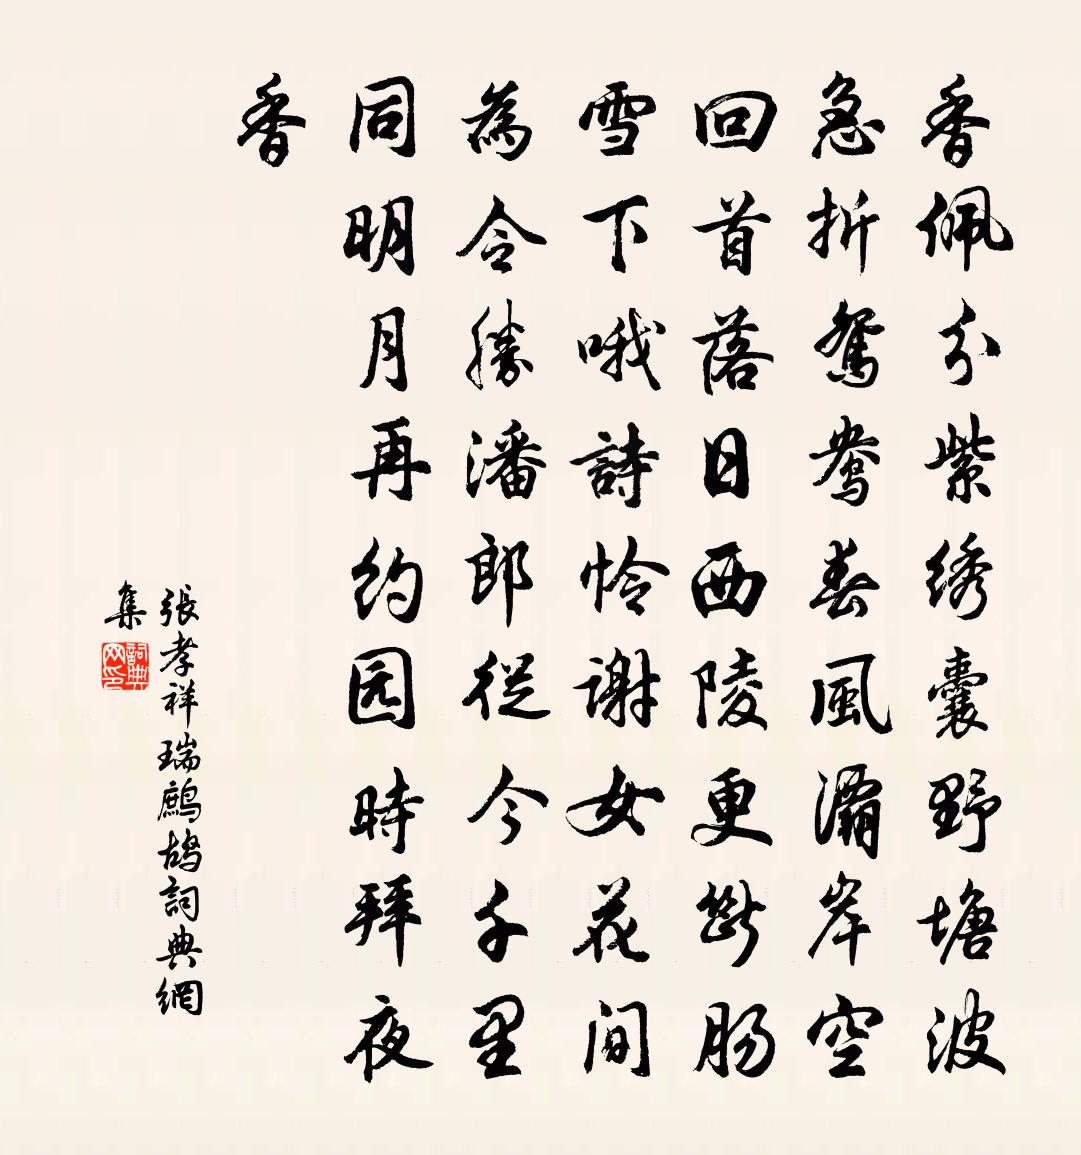 香佩分紫绣囊野塘波
急折鸳鸯春風灞岸空
回首落日西陵更斷肠
雪下哦詩怜谢女花间
為令勝潘郎從今千里
同明月再约园時拜夜
香
張孝祥瑞鷓鴣詞典網
集
詞典
网印